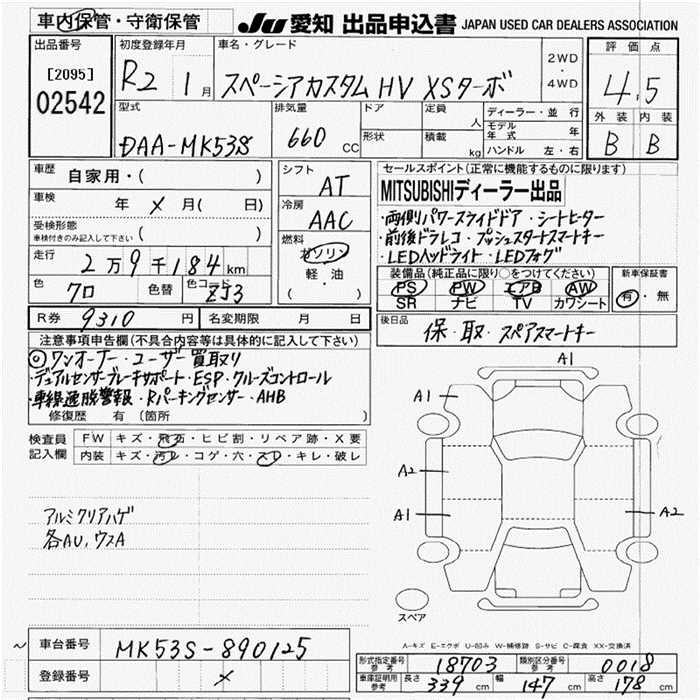 車内保管・守衛保管
JU 愛知 出品申込書 JAPAN USED CAR DEALERS ASSOCIATION
出品番号
[2095]
02542
初度登録年月
R2 1月
車名・グレード
スペーシアカスタム HV XSターボ
2WD
・
4WD
評価点
4.5
外装 内装
B B
型式
DAA-MK53S
排気量
660 CC
ドア
形状
定員 人
積載 kg
ディーラー・並行
モデル年式 年
ハンドル 左・右
車歴 自家用・( )
車検 年 メ 月( 日)
受検形態
車検付きのみ記入して下さい ( )
走行 2万9千184km
色 クロ 色替 色コード ZJ3
シフト AT
冷房 AAC
燃料
ガソリン
軽・油
( )
R券 9310 円 名変期限 月 日
セールスポイント(正常に機能するものに限ります)
MITSUBISHIディーラー出品
・両側パワースライドドア・シートヒーター
・前後ドラレコ・プッシュスタートスマートキー
・LEDヘッドライト・LEDフォグ
装備品(純正品に限り○をつけてください)
PS PW エアB AW
SR ナビ TV カワシート
新車保証書
有・無
後日品 保・取・スペアスマートキー
注意事項申告欄(不具合内容等は具体的に記入して下さい)
◎ワンオーナー・ユーザー買取り
・デュアルセンサーブレーキサポート・ESP・クルーズコントロール
・車線逸脱警報・Rパーキングセンサー・AHB
修復歴 有(箇所 )
検査員記入欄
FW キズ・飛石・ヒビ割・リペア跡・X要
内装 キズ・汚レ・コゲ・穴・スレ・キレ・破レ
アルミクリアハゲ
各AU、ウスA
A1
A1
A2
A1
A2
スペア
A-キズ E-エクボ U-凹み W-補修跡 S-サビ C-腐食 XX-交換済
~ 車台番号 MK53S-890125
登録番号 メ
形式指定番号 参考 18703 類別区分番号 参考 0018
車庫証明用 参考 長さ 339 cm 幅 147 cm 高さ 178 cm